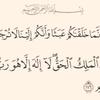 نَّمَا خَلَقْنَٰكُمْ عَبَثًا وَأَنَّكُمْ إِلَيْنَا لَا تُرْجَ
ٱلْمَلِكُ ٱلْحَقُّ لَآ إِلَٰهَ إِلَّا هُوَ رَبُّ